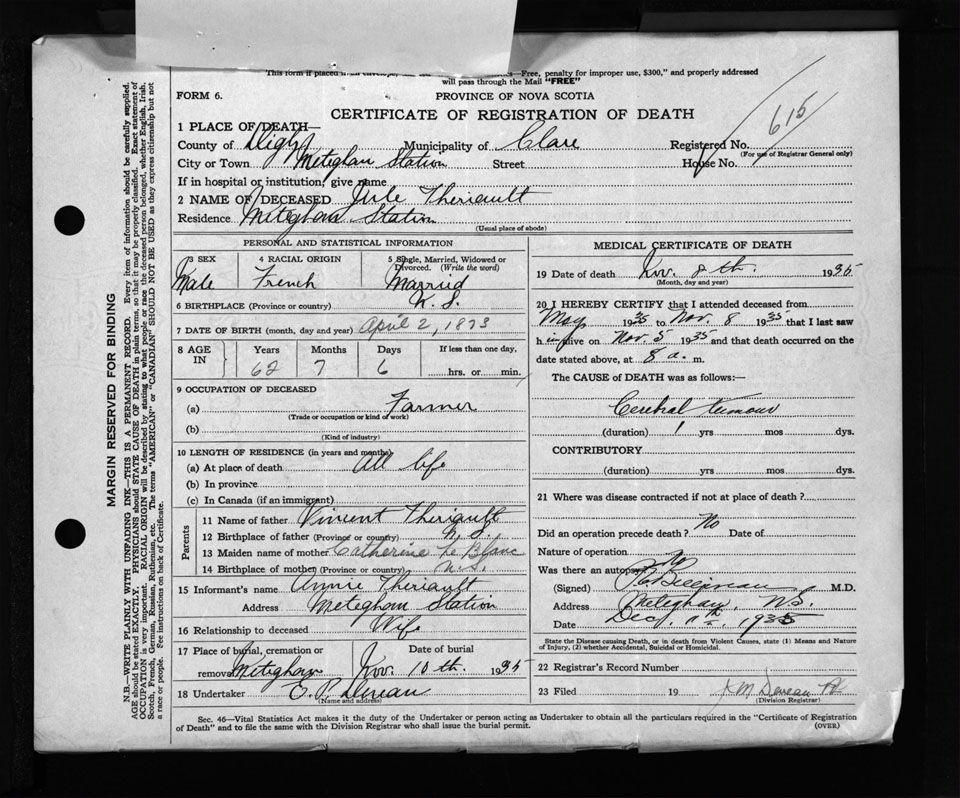 This form if placed in an envelope, —Free, penalty for improper use, $300," and properly addressed
will pass through the Mail "FREE"
FORM 6.
PROVINCE OF NOVA SCOTIA
CERTIFICATE OF REGISTRATION OF DEATH
615
1 PLACE OF DEATH—
County of Digby Municipality of Clare Registered No.
(For use of Registrar General only)
City or Town Meteghan Station Street House No.
If in hospital or institution, give name
2 NAME OF DECEASED Jule Theriault
Residence Meteghan Station
(Usual place of abode)
PERSONAL AND STATISTICAL INFORMATION
3 SEX 4 RACIAL ORIGIN 5 Single, Married, Widowed or
Divorced. (Write the word)
Male French Married
6 BIRTHPLACE (Province or country) N. S.
7 DATE OF BIRTH (month, day and year) April 2, 1873
8 AGE IN Years Months Days If less than one day,
62 7 6 hrs. or min.
9 OCCUPATION OF DECEASED
(a) Farmer
(Trade or occupation or kind of work)
(b)
(Kind of industry)
10 LENGTH OF RESIDENCE (in years and months)
(a) At place of death All life
(b) In province
(c) In Canada (if an immigrant)
Parents
11 Name of father Vincent Theriault
12 Birthplace of father (Province or country) N. S.
13 Maiden name of mother Catherine Le Blanc
14 Birthplace of mother (Province or country) N.S.
15 Informant's name Annie Theriault
Address Meteghan Station
16 Relationship to deceased Wife
17 Place of burial, cremation or Date of burial
removal Meteghan Nov. 10 th. 1935
18 Undertaker E. P. Deveau
(Name and address)
MEDICAL CERTIFICATE OF DEATH
19 Date of death Nov. 8 th. 1935
(Month, day and year)
20 I HEREBY CERTIFY that I attended deceased from
May 1935 to Nov. 8 1935 that I last saw
h im alive on Nov. 5 1935 and that death occurred on the
date stated above, at 8 a. m.
The CAUSE of DEATH was as follows:—
Cerebral tumour
(duration) 1 yrs mos dys.
CONTRIBUTORY
(duration) yrs mos dys.
21 Where was disease contracted if not at place of death?
Did an operation precede death? No Date of
Nature of operation
Was there an autopsy No
(Signed) M.D.
Address Meteghan, N.S.
Date Dec. 11th, 1935
State the Disease causing Death, or in death from Violent Causes, state (1) Means and Nature
of Injury, (2) whether Accidental, Suicidal or Homicidal.
22 Registrar's Record Number
23 Filed 19 J M Deveau
(Division Registrar)
Sec. 46—Vital Statistics Act makes it the duty of the Undertaker or person acting as Undertaker to obtain all the particulars required in the "Certificate of Registration
of Death" and to file the same with the Division Registrar who shall issue the burial permit. (OVER)
MARGIN RESERVED FOR BINDING
N.B.—WRITE PLAINLY WITH UNFADING INK—THIS IS A PERMANENT RECORD. Every item of information should be carefully supplied.
AGE should be stated EXACTLY. PHYSICIANS should STATE CAUSE OF DEATH in plain terms, so that it may be properly classified. Exact statement of
OCCUPATION is very important. RACIAL ORIGIN will be described by stating to what people or race the deceased person belonged, whether English, Irish,
Scotch, French, German, Russian, Ruthenian, etc. The terms "AMERICAN" or "CANADIAN" SHOULD NOT BE USED as they express citizenship but not
a race or people. See instructions on back of Certificate.